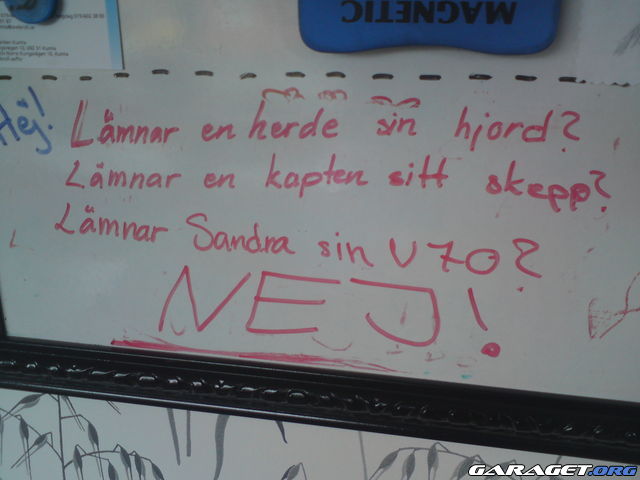 MAGNETIC
Hej!
Lämnar en herde sin hjord?
Lämnar en kapten sitt skepp?
Lämnar Sandra sin V70?
NEJ!
GARAGET.ORG